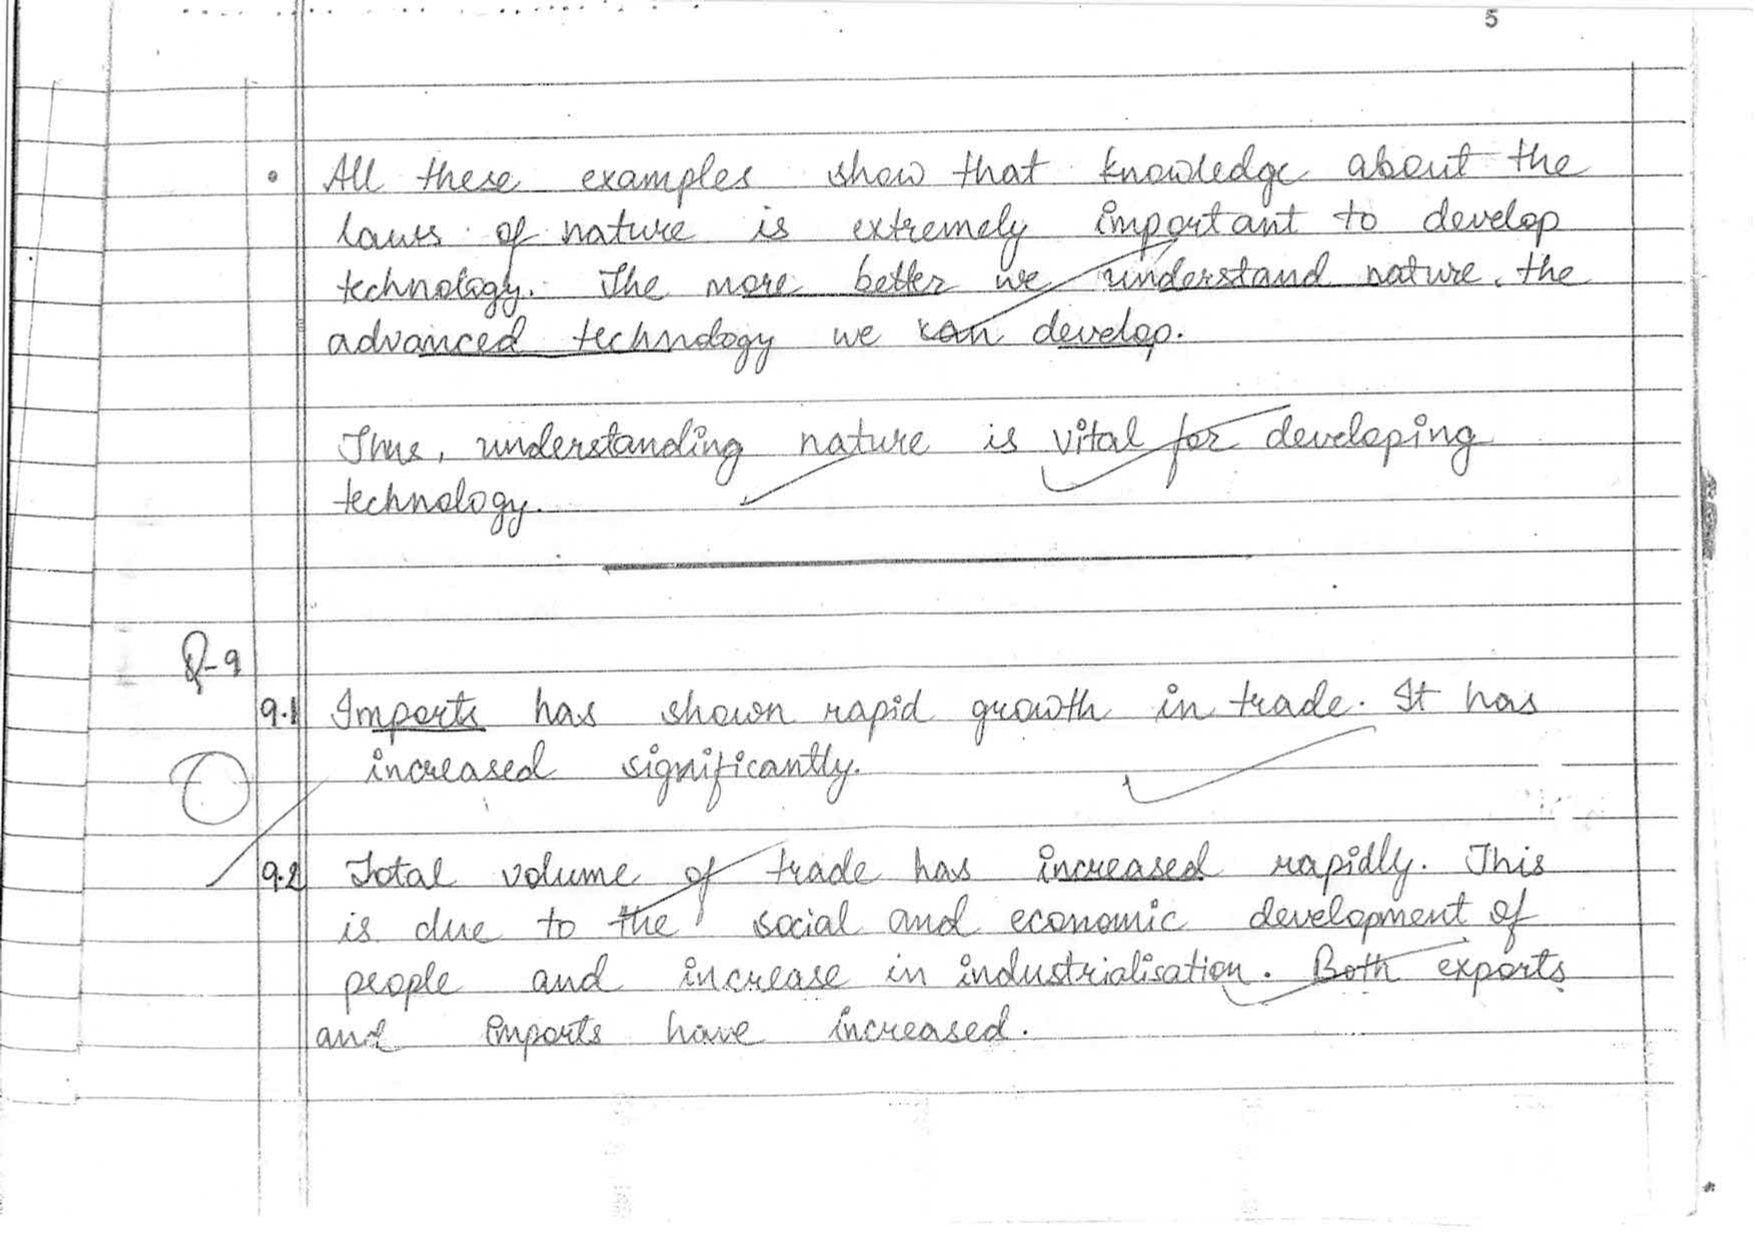 5
• All these examples show that knowledge about the
laws of nature is extremely important to develop
technology. The more better we understand nature, the
advanced technology we can develop.
Thus, understanding nature is vital for developing
technology.
Q-9
9.1 Imports has shown rapid growth in trade. It has
increased significantly.
9.2 Total volume of trade has increased rapidly. This
is due to the social and economic development of
people and increase in industrialisation. Both exports
and imports have increased.